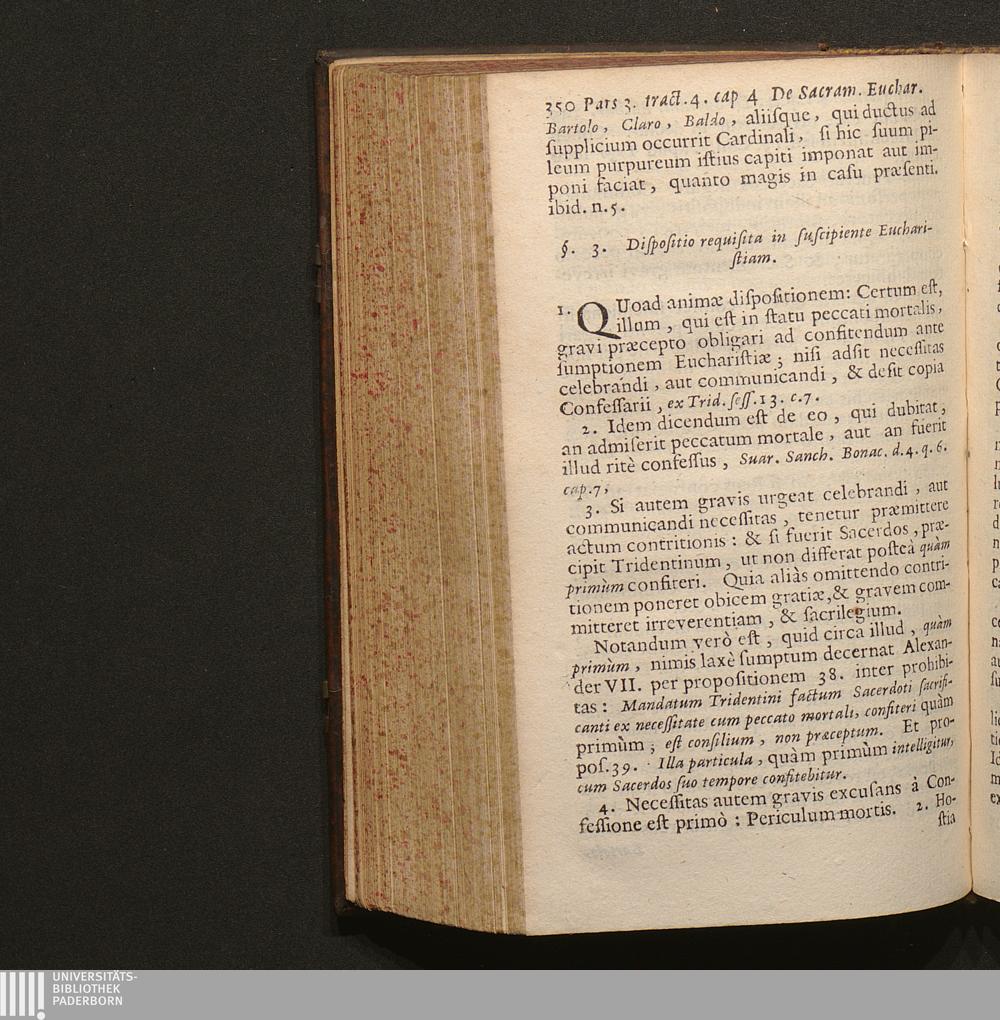 350 Pars 3. tract.4. cap 4 De Sacram. Euchar.
Bartolo, Claro, Baldo, aliiſque, qui ductus ad
ſupplicium occurrit Cardinali, ſi hic ſuum pi-
leum purpureum iſtius capiti imponat aut im-
poni faciat, quanto magis in caſu præſenti.
ibid. n.5.
§. 3. Diſpoſitio requiſita in ſuſcipiente Euchari-
ſtiam.
1. QUoad animæ diſpoſitionem: Certum eſt,
illum, qui eſt in ſtatu peccati mortalis,
gravi præcepto obligari ad confitendum ante
ſumptionem Euchariſtiæ; niſi adſit neceſſitas
celebrandi, aut communicandi, & deſit copia
Confeſſarii, ex Trid. ſeſſ.13. c.7.
2. Idem dicendum eſt de eo, qui dubitat,
an admiſerit peccatum mortale, aut an fuerit
illud ritè confeſſus, Suar. Sanch. Bonac. d.4. q.6.
cap.7,
3. Si autem gravis urgeat celebrandi, aut
communicandi neceſſitas, tenetur præmittere
actum contritionis: & ſi fuerit Sacerdos, præ-
cipit Tridentinum, ut non differat poſteà quàm
primùm confiteri. Quia aliàs omittendo contri-
tionem poneret obicem gratiæ, & gravem com-
mitteret irreverentiam, & ſacrilegium.
Notandum verò eſt, quid circa illud, quàm
primùm, nimis laxè ſumptum decernat Alexan-
der VII. per propoſitionem 38. inter prohibi-
tas: Mandatum Tridentini factum Sacerdoti ſacrifi-
canti ex neceſſitate cum peccato mortali, confiteri quàm
primùm; eſt conſilium, non præceptum. Et pro-
poſ.39. Illa particula, quàm primùm intelligitur,
cum Sacerdos ſuo tempore confitebitur.
4. Neceſſitas autem gravis excuſans à Con-
feſſione eſt primò: Periculum mortis. 2. Ho-
ſtia
UNIVERSITÄTS-
BIBLIOTHEK
PADERBORN